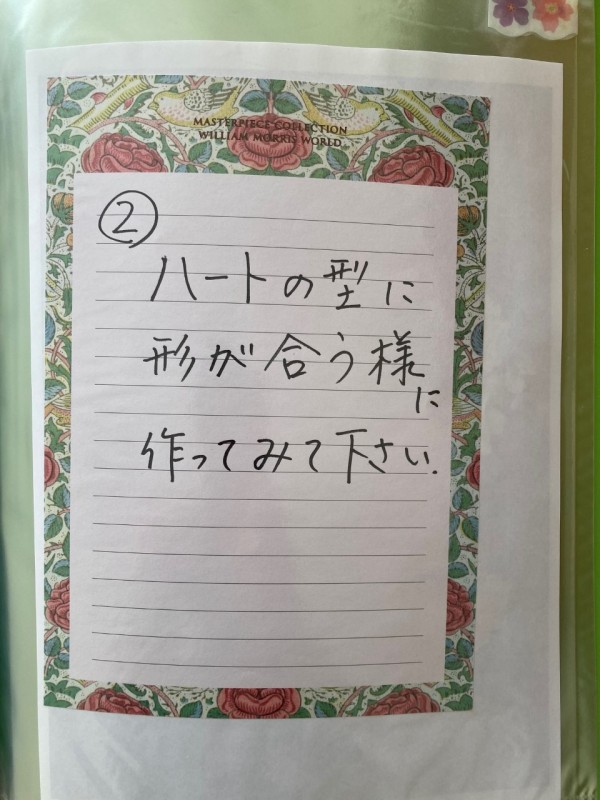 MASTERPIECE COLLECTION
WILLIAM MORRIS WORLD
②
ハートの型に
形が合う様に
作ってみて下さい.